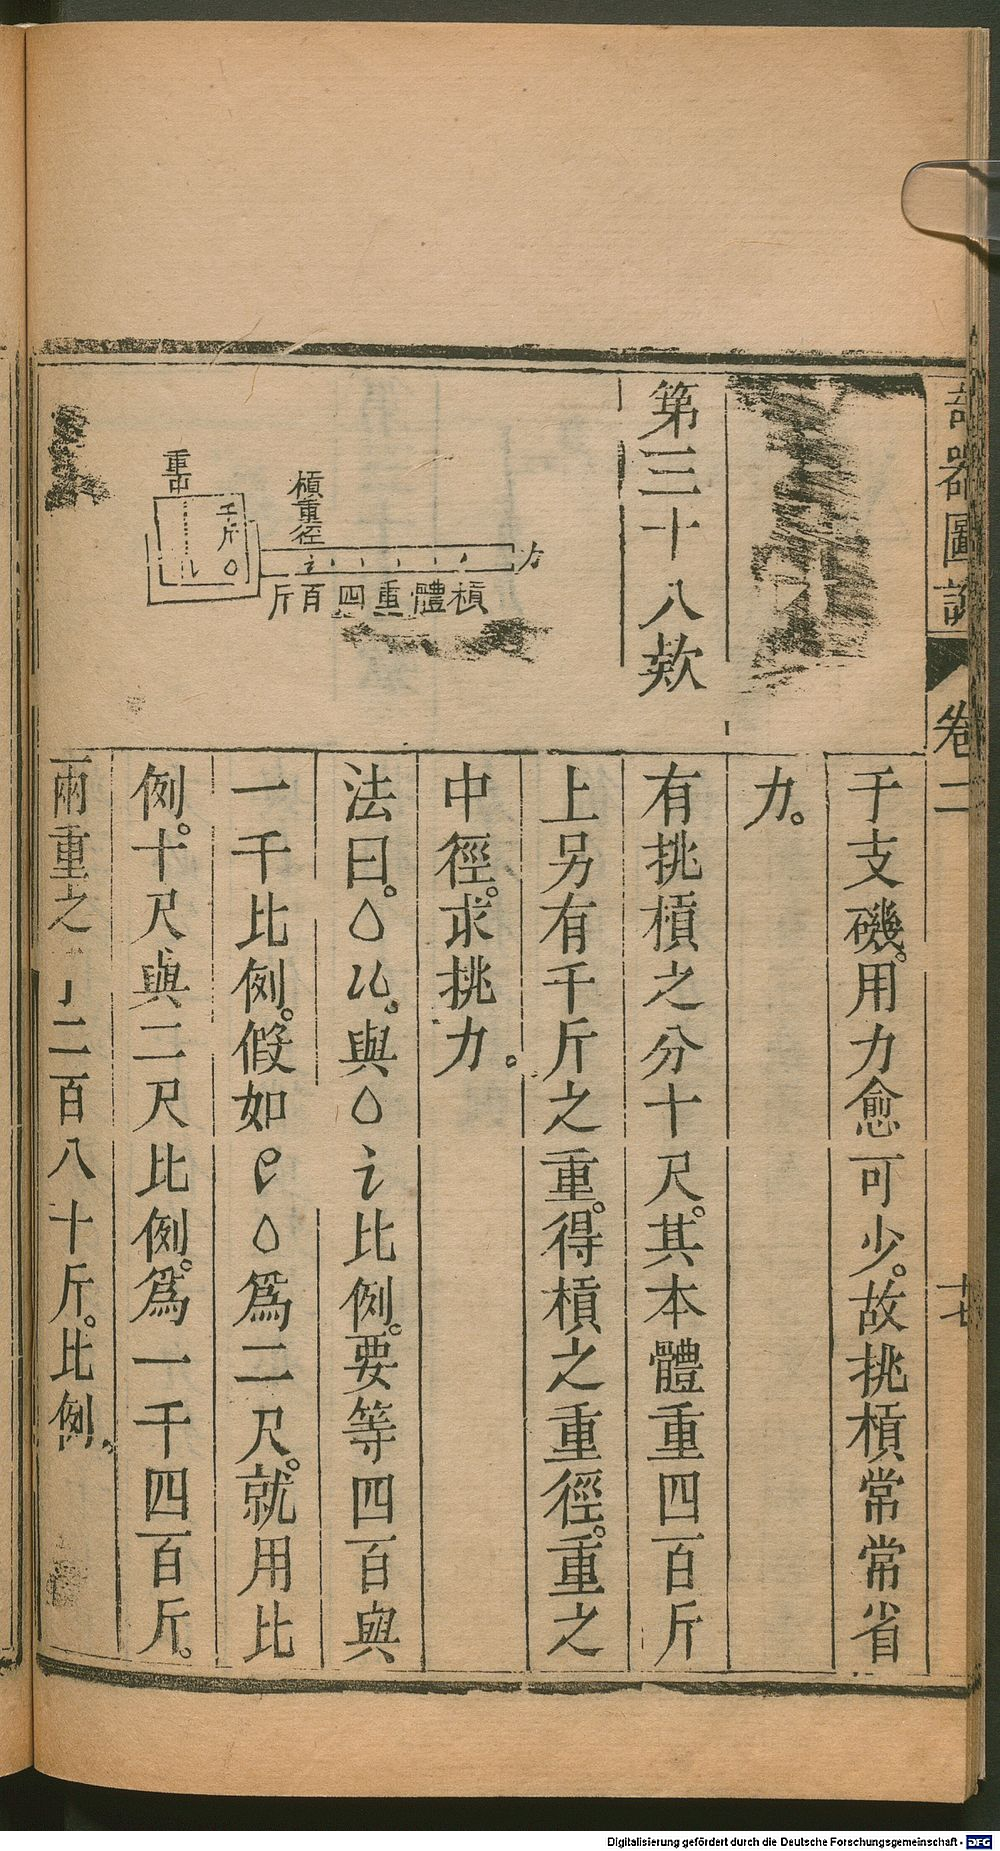 奇器圖說 卷二 十七
于支磯。用力愈可少。故挑槓常常省
力。
第三十八款
有挑槓之分十尺。其本體重四百斤
上另有千斤之重。得槓之重徑。重之
中徑。求挑力。
法曰。 與 比例。要等四百與
一千比例。假如 爲二尺。就用比
例。十尺與二尺比例。爲一千四百斤。
兩重之 二百八十斤。比例。
重中
千斤
槓重徑
力
槓體重四百斤
Digitalisierung gefördert durch die Deutsche Forschungsgemeinschaft - DFG